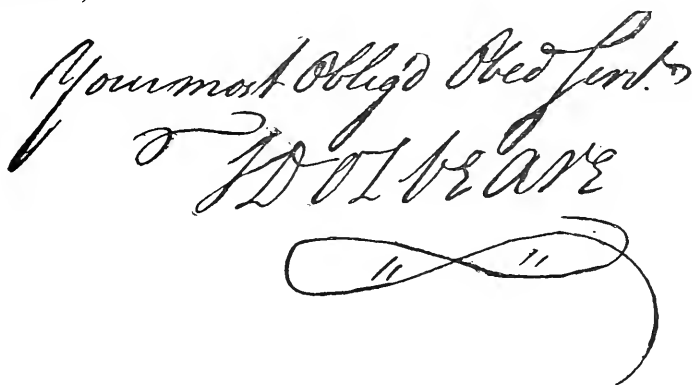 Your most Oblig'd Obed Servt.
J DOLbEArE